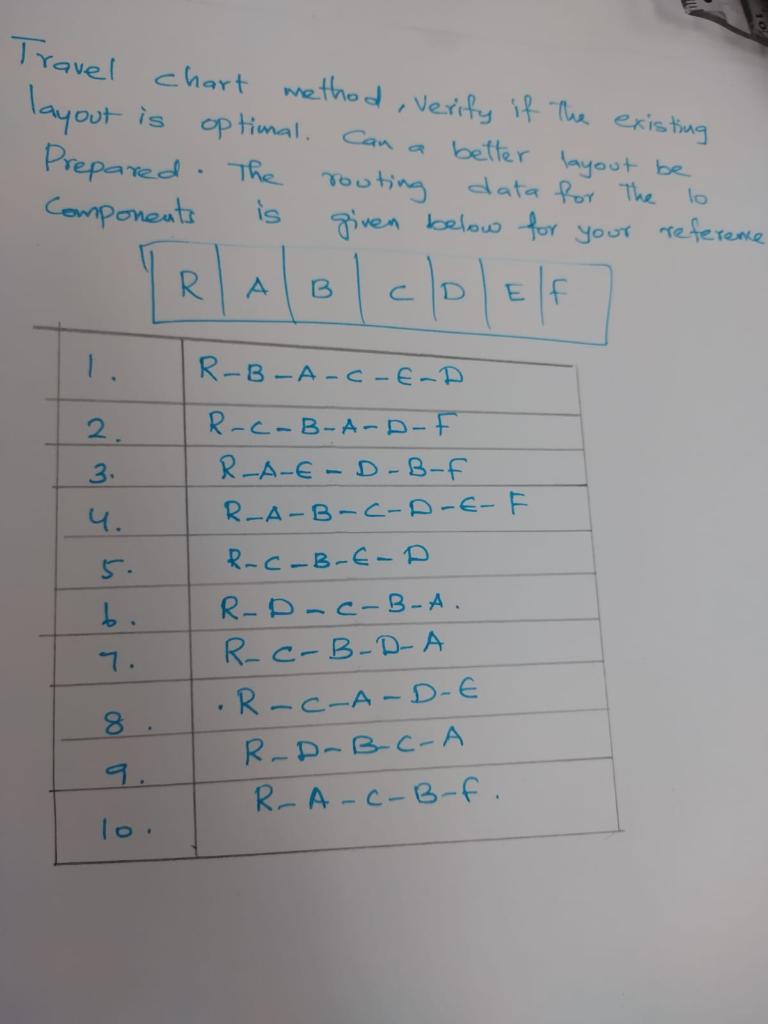 Travel chart method, Verify if The existing
layout is optimal. Can a better layout be
Prepared. The routing data for The 10
Components is given below for your reference
R A B C D E F
1. R-B-A-C-E-D
2. R-C-B-A-D-F
3. R-A-E-D-B-F
4. R-A-B-C-D-E-F
5. R-C-B-E-D
6. R-D-C-B-A.
7. R-C-B-D-A
8. .R-C-A-D-E
9. R-D-B-C-A
10. R-A-C-B-F.